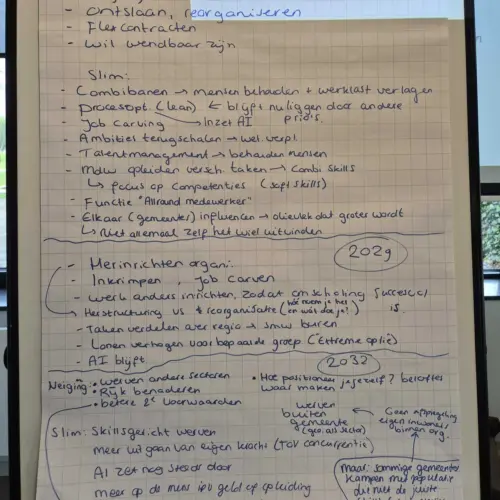 - ontslaan, reorganiseren
- Flexcontracten
- wil wendbaar zijn
Slim:
- Combibanen → mensen behouden + werklast verlagen
- Procesopt. (lean) ← blijft nu liggen door andere prio's
- Job carving → Inzet AI
- Ambities terugschalen → wel. verpl.
- Talentmanagement → behouden mensen
- mdw opleiden versch. taken → Combi skills
↳ focus op competenties (soft skills)
- Functie "Allround medewerker"
- Elkaar (gemeentes) influencen → olievlek dat groter wordt
↳ Niet allemaal zelf het wiel uitvinden
2029
- Herinrichten organi.
- Interimpen, Job carven
- werk anders inrichten, zodat omscholing succesvol is
- Herstructuring vs reorganisatie (hoe noem je het en wat doe je!)
- Taken verdelen over regio → smw buren
- Lonen verhogen voor bepaalde groep ("Extreme optie)
- AI blijft
2032
Neiging: • werven andere sectoren
• Rijk benaderen
• betere 2e voorwaarden
• Hoe positioneer je jezelf? beloftes waar maken
werven buiten gemeente
Geen
eigen inwoners binnen org.
Slim: Skillsgericht werven
meer uit gaan van eigen kracht (tov concurrentie)
AI zet nog steeds door
meer op de mens ipv geld of opleiding
maar: sommige gemeenten
kampen met populatie
die niet de juiste